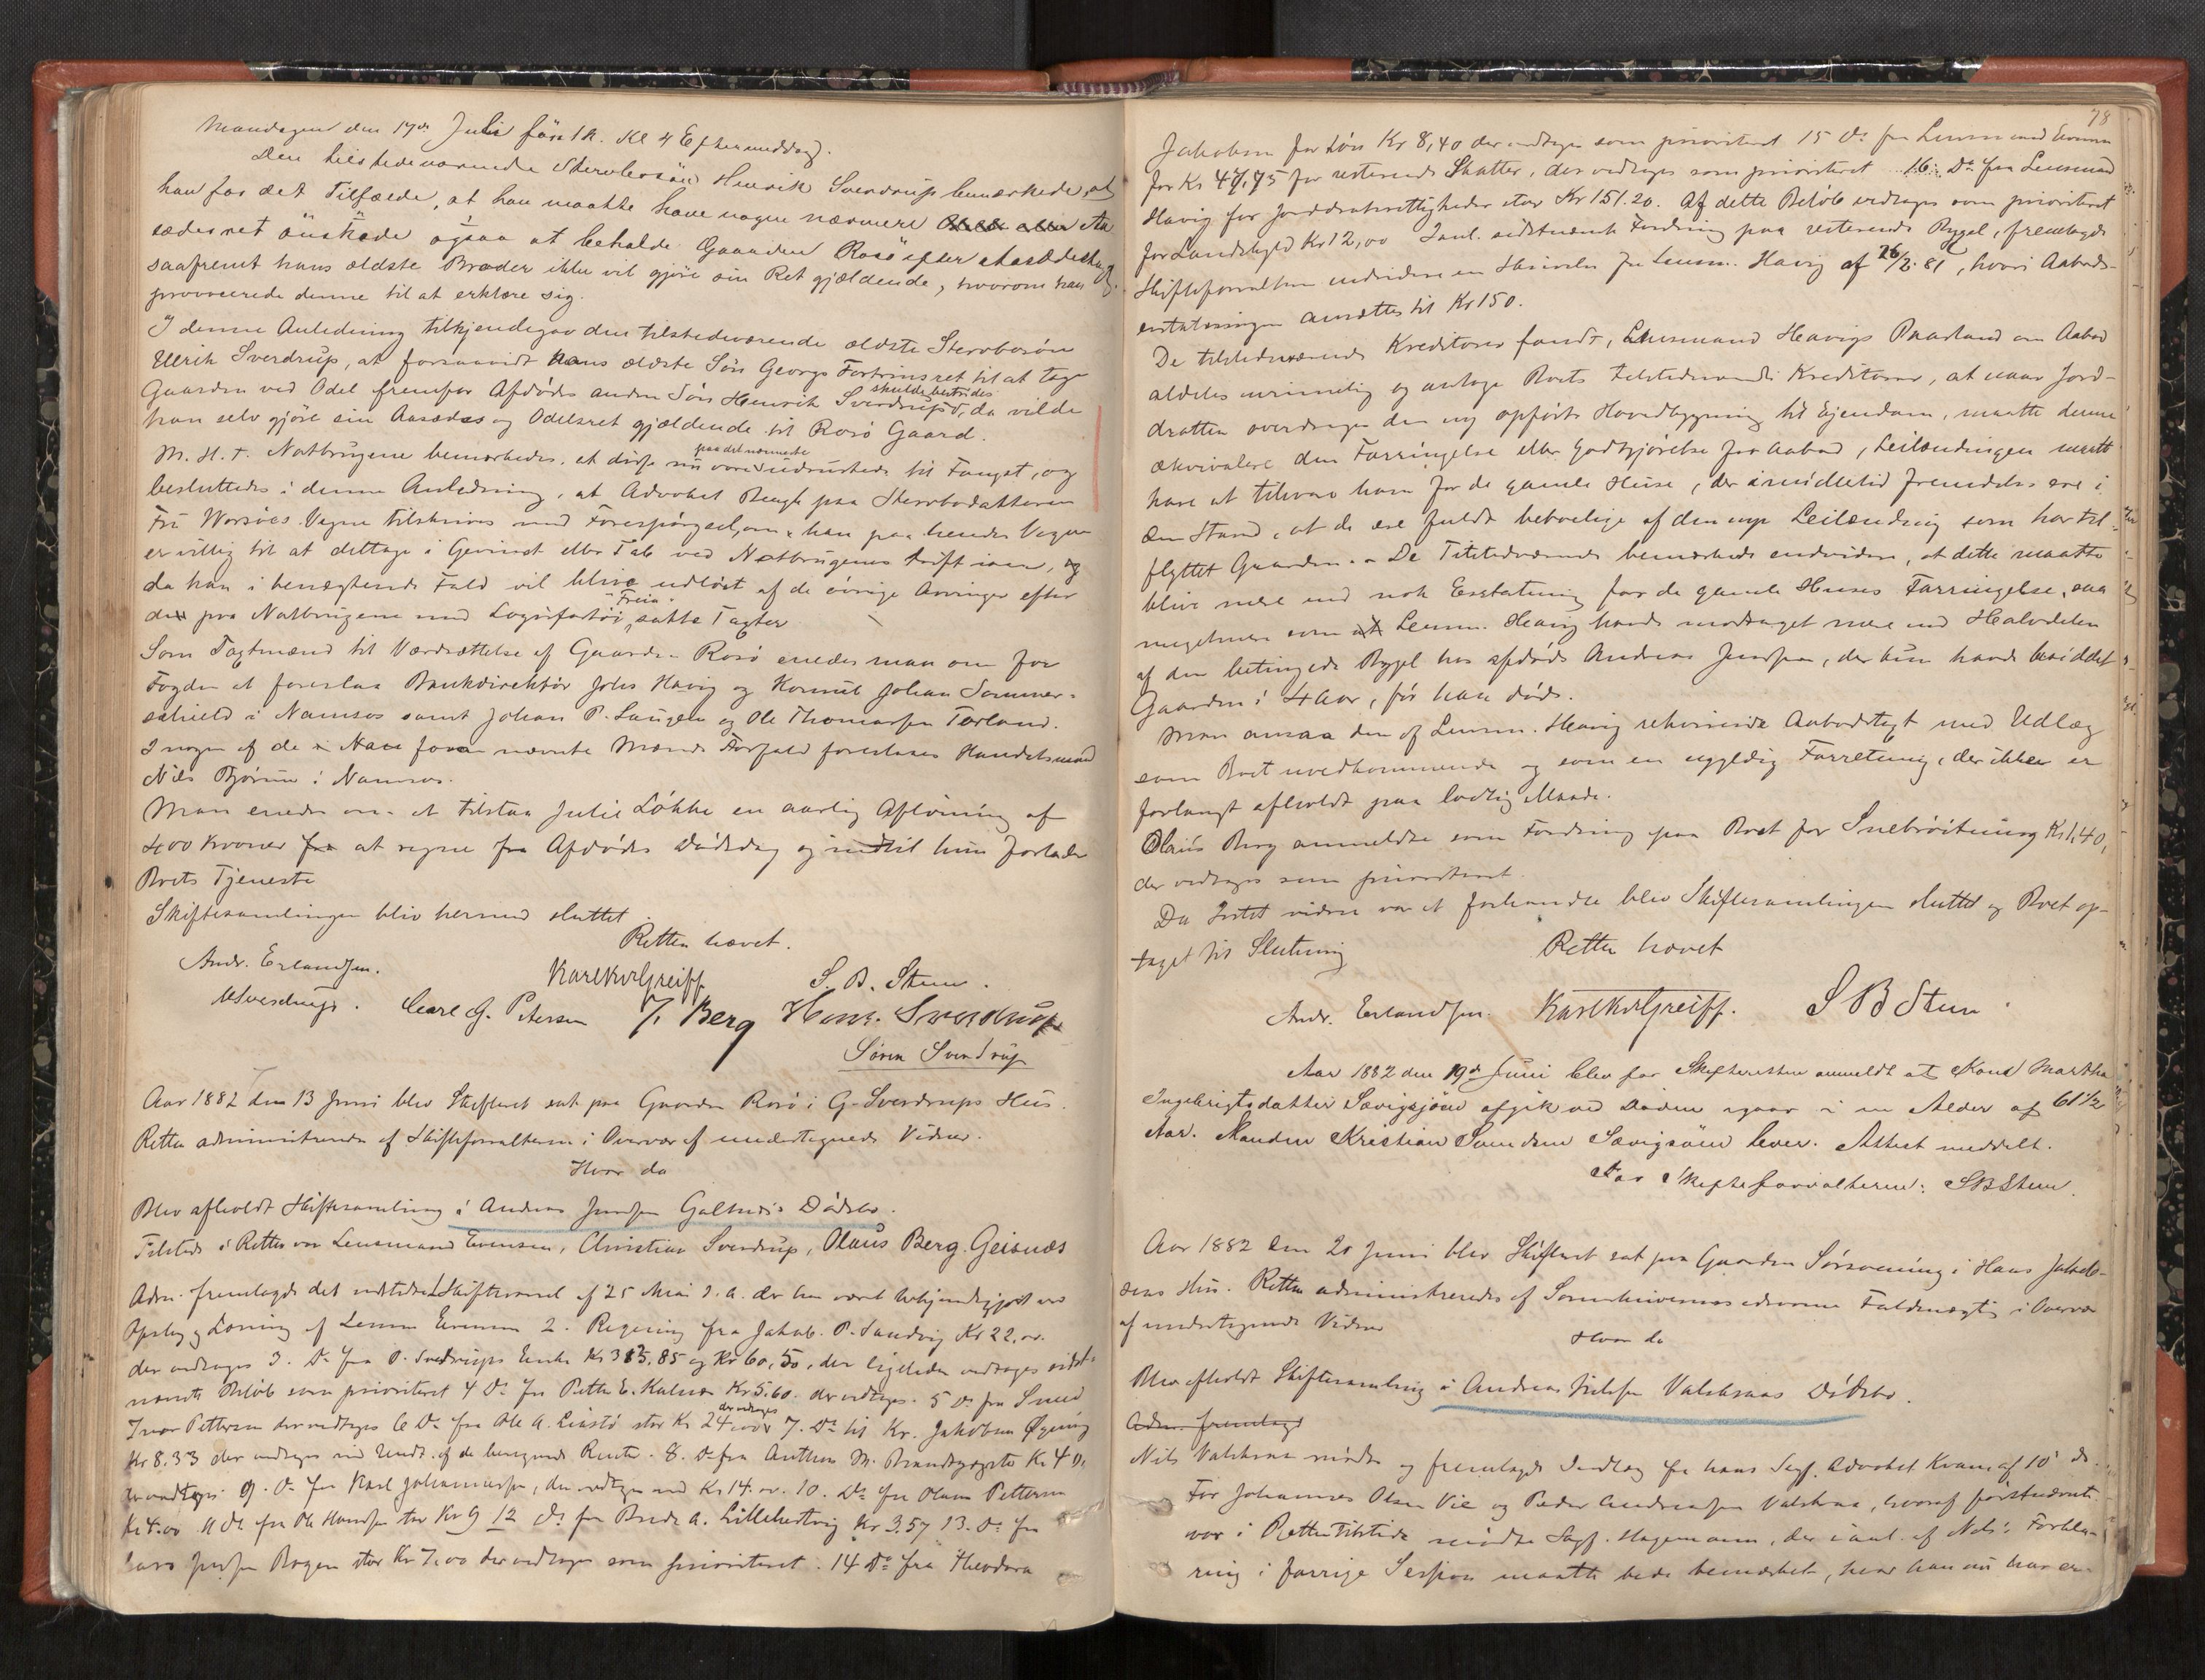 Mandagen den 17de Juli förstk. Kl 4 Eftermiddag.
Den tilstedeværende Stervbosön Henrik Sverdrup bemærkede, at
han for det Tilfælde, at han maatte have nogen nærmere Aa
sædesret önskede ogsaa at beholde Gaarden Rosö efter Aasædestaxt
saafremt hans ældste Broder ikke vil gjöre sin Ret gjældende, hvorom han
provocerede denne til at erklære sig.
I denne Anledning tilkjendegav den tilstedeværende ældste Stervbosön
Ulrik Sverdrup, at forsaavidt hans ældste Sön Georgs Fortrinsret til at tage
Gaarden ved Odel fremfor Afdödes anden Sön Henrik Sverdrup skulde bestrides, da vilde
han selv gjöre sin Aasædes og Odelsret gjældende til Rosö Gaard.
M. H. t. Notbrugene bemærkedes, at disse nu vare paa det nærmeste udrustede til Fangst, og
besluttedes i denne Anledning, at Advokat Bergh paa Stervbodatteren
Fru Worsöes Vegne tilskrives med Forespörgsel, om han paa hendes Vegne
er villig til at deltage i Gevinst eller Tab ved Notbrugenes Drift iaar, og
da han i benægtende Fald vil blive udlöst af de övrige Arvinger efter
den paa Notbrugene med Logisfartöi "Freia" satte Taxter
Som Taxtmænd til Værdsættelse af Gaarden Rosö enedes man om for
Fogden at foreslaa Bankdirektör Johs Havig og Konsul Johan Sommer-
schield i Namsos samt Johan P. Saugen og Ole Thomassen Törland.
I nogen af de foran nævnte Mænds Forfald foreslaaes Handelsmand
Nils Björum i Namsos.
Man enedes om at tilstaa Julie Løkke en aarlig Aflönning af
400 Kroner fra at regne fra Afdödes Dödsdag og indtil hun forlader
Boets Tjeneste
Skiftesamlingen blev hermed sluttet.
Retten hævet.
Andr. Erlandsen. KarlKvlGreiff S. B. Steen.
USverdrup. Carl G. Petersen J. Berg Henr. Sverdrup
Sören Sverdrup
Aar 1882 den 13 Juni blev Skifteret sat paa Gaarden Rosö i G. Sverdrups Hus.
Retten administrertes af Skifteforvalteren i Overvær af undertegnede Vidner.
Hvor da
Blev afholdt Skiftesamling i Andreas Jensen Galtnes's Dödsbo.
Tilstede i Retten var Lensmand Evensen, Christian Sverdrup, Olaus Berg Geisnæs
Adm. fremlagde det udstedte Skiftevarsel af 25 Mai d. A. der har været bekjendtgjort ved
Opslag og Læsning af Lensm. Evensen 2. Regning fra Jakob P. Sandvig Kr 22,00.
der vedtages 3. Do fra P. Sverdrups Enke Kr 313,85 og Kr 60,50, der ligeledes vedtages sidst-
nævnte Belöb som prioriteret 4 Do fra Petter E. Kalnæs Kr 5,60. der vedtages. 5 Do fra Smed
Ivar Pettersen der vedtages 6 Do fra Ole A. Leirstö stor Kr 24,00 der vedtages 7. Do til Kr. Jakobsen Øgning
Kr 8.33 der vedtages med Undt. af de beregnede Renter. 8. Do fra Anthon M. Brandtzægster Kr 4 Do
der vedtages 9. Do fra Karl Johannessen, der vedtages med Kr 14.00. 10. Do fra Olaus Pettersen
Kr 4.00 11 do fra Ole Hansen stor Kr 9 12 do fra Peder A. Lillehestvig Kr 3.57 13. Do fra
Lars Jensen Bogen stor Kr 7,00 der vedtages som prioriteret. 14 Do fra Theodora
78
Jakobsen for Lön Kr 8,40 der vedtages som prioriteret 15 Do fra Lensmand Evensen
for Kr 47,75 for resterende Skatter, der vedtages som prioriteret 16. Do fra Lensmand
Havig for Jorddrotsrettigheder stor Kr 151.20. Af dette Belöb vedtages som prioriteret
for Landskyld Kr 12,00 I anl. sidstnævnte Fordring paa resterende Bygsel, fremlagde
Skifteforvalteren endvidere en Skrivelse fra Lensm. Havig af 26/2 81, hvori Aabods-
erstatningen ansættes til Kr 150.
De tilstedeværende Kreditorer fandt, Lensmand Havigs Paastand om Aabod
aldeles urimelig og antage Boets tilstedeværende Kreditorer, at naar Jord-
drotten overdrages den ny opförte Hovedbygning til Ejendom, maatte denne
ækvivalere den Forringelse eller Godtgjörelse for Aabod, Leilendingen maatte
have at tilsvare ham for de gamle Huse, der imidlertid fremdeles ere i
den Stand, at de ere fuldt beboelige af den nye Leilending som har til-
flyttet Gaarden. - De Tilstedeværende bemærkede endvidere, at dette maatte
blive mere end nok Erstatning for de gamle Huses Forringelse, saa
meget mere som Lensm. Havig havde modtaget mere end Halvdelen
af den betingede Bygsel hos afdöde Andreas Jensen, der kun havde besiddet
Gaarden i 4 Aar, för han döde.
Man ansaa den af Lensm. Havig rekvirerede Aabodstaxt med Udlæg
som Boet uvedkommende og som en ugyldig Forretning, der ikke er
forlangt afholdt paa lovlig Maade.
Olaus Berg anmeldte som Fordring paa Boet for Snebröitning Kr 1,40,
der vedtages som prioriteret.
Da Intet videre var at forhandle blev Skiftesamlingen sluttet og Boet op-
taget til Slutning
Retten hævet
Andr. Erlandsen. KarlKvlGreiff. S B Steen.
Aar 1882 den 19de Juni blev for Skifteretten anmeldt at Kone Martha
Ingebrigtsdatter Sævigsjöen afgik ved Döden igaar i en Alder af 61 1/2
Aar. Manden Kristian Svendsen Sævigsöen lever. Attest meddelt.
For Skifteforvalteren: SBSteen.
Aar 1882 den 20 Juni blev Skifteret sat paa Gaarden Sörsvening i Hans Jakob-
sens Hus. Retten administreredes af Sorenskriverens edsvorne Fuldmægtig i Overvær
af undertegnede Vidner
Hvor da
Blev afholdt Skiftesamling i Andreas Nilsen Valskraas Dödsbo.
Adm. fremlagt
Nils Valskraa mödte og fremlagde Indlæg fra hans Sagf. Advokat Kvam af 10 ds.
For Johannes Olsen Vie og Peder Andreassen Valskraa, hvoraf förstnævnte
var i Retten tilstede mödte Sagf. Hagemann, der i anl. af Nils's Forkla-
ring i forrige Session maatte bede bemærket, hvad han nu har er-